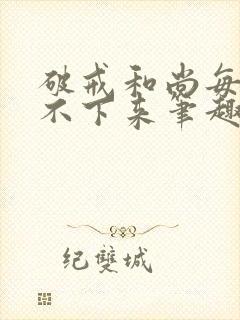 破戒和尚每
不下来笔趣
纪双城